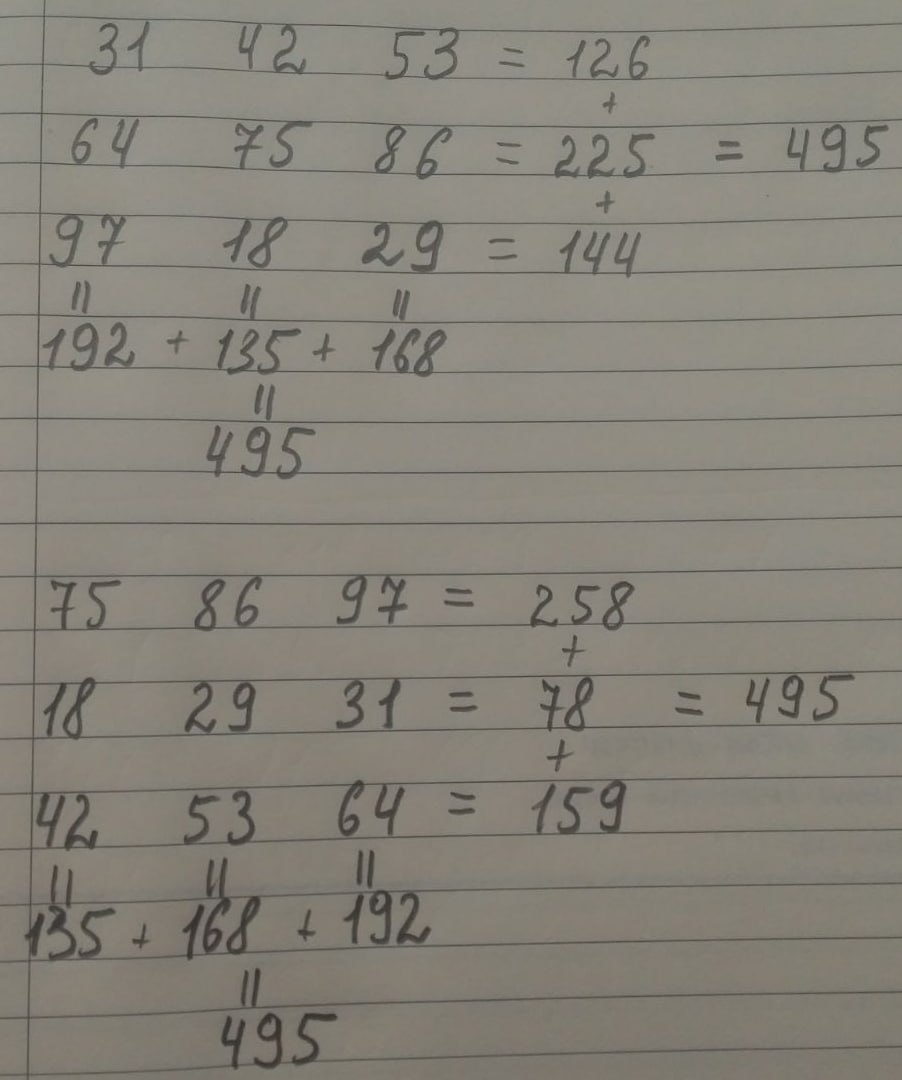 31 42 53 = 126
+
64 75 86 = 225 = 495
+
97 18 29 = 144
= = =
192 + 135 + 168
=
495
75 86 97 = 258
+
18 29 31 = 78 = 495
+
42 53 64 = 159
= = =
135 + 168 + 192
=
495